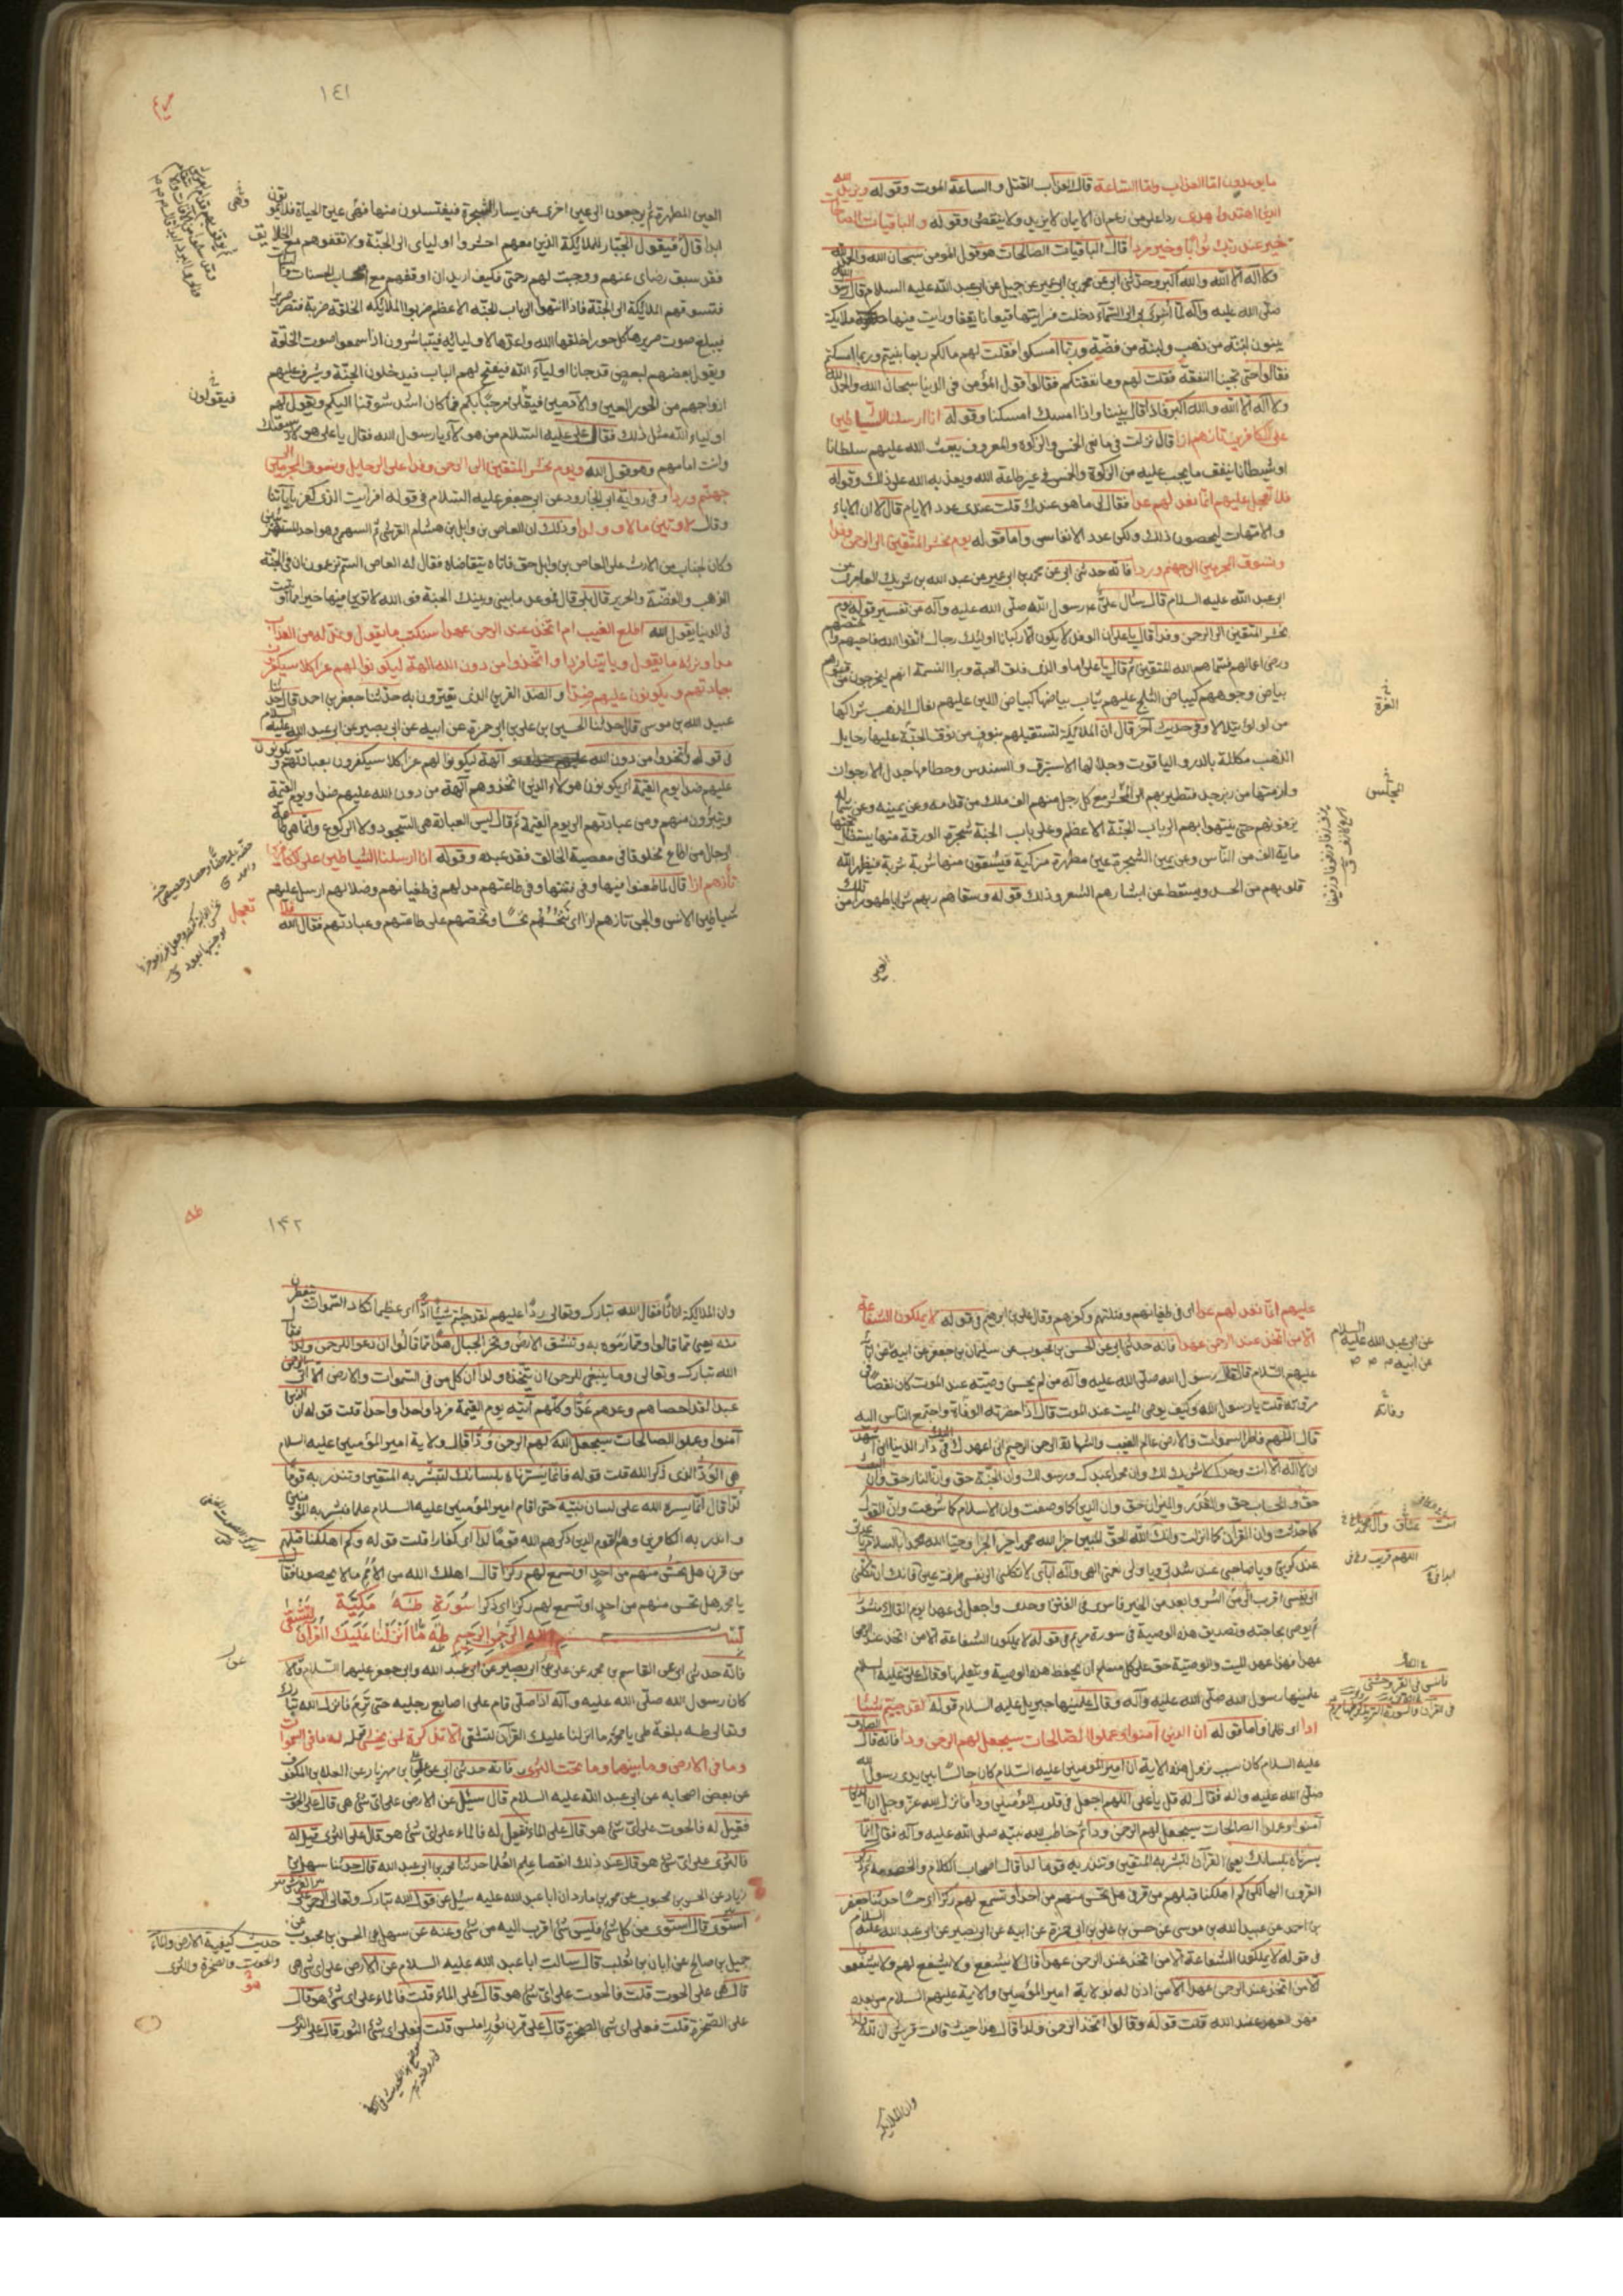 ما يوعدون اما العذاب واما الساعة قال العذاب القتل والساعة الموت وقوله ويزيد الله
الذين اهتدوا هدى ردا على من زعم ان الايمان لا يزيد ولا ينقص وقوله والباقيات الصالحات
خير عند ربك ثوابا وخير مردا قال الباقيات الصالحات هو قول المومن سبحان الله والحمد لله
ولا اله الا الله والله اكبر وحدثنى ابى عن محمد بن ابى عمير عن جميل عن ابى عبد الله عليه السلام قال قال رسول الله
صلى الله عليه وآله لما اسرى بى الى السماء دخلت فرايتها قيعانا يققا ورايت منها ملايكة
يبنون لبنة من ذهب ولبنة من فضة وربما امسكوا فقلت لهم مالكم ربما بنيتم وربما امسكتم
فقالوا حتى تجيئنا النفقة فقلت لهم وما نفقتكم فقالوا قول المؤمن فى الدنيا سبحان الله والحمد لله
ولا اله الا الله والله اكبر فاذا قال بنينا واذا امسك امسكنا وقوله انا ارسلنا الشياطين
على الكافرين تازهم ازا قال نزلت فى مانعى الخمس والزكوة والمعروف يبعث الله عليهم سلطانا
او شيطانا ينفق ما يجب عليه من الزكوة والخمس فى غير طاعة الله ويعذبه الله على ذلك وقوله
فلا تعجل عليهم انما نعد لهم عدا فقال لى ما هو عندك قلت عندى عدد الايام قال لا ان الاباء
والامهات ليحصون ذلك ولكن عدد الانفاس واما قوله يوم نحشر المتقين الى الرحمن وفدا
ونسوق المجرمين الى جهنم وردا فانه حدثنى ابى عن محمد بن ابى عمير عن عبد الله بن شريك العامرى عن
ابى عبد الله عليه السلام قال سأل على ع رسول الله صلى الله عليه وآله عن تفسير قوله يوم
نحشر المتقين الى الرحمن وفدا قال يا على ان الوفد لا يكون الا ركبانا اوليك رجال اتقوا الله فاحبهم واختصهم
ورضى اعمالهم فسماهم الله المتقين ثم قال يا على اما والذى فلق الحبة وبرا النسمة انهم ليخرجون من قبورهم
بياض وجوههم كبياض الثلج عليهم ثياب بياضها كبياض اللبن عليهم نعال الذهب شراكها
من لولو يتلالا وفى حديث آخر قال ان الملايكة لتستقبلهم بنوق من نوق الجنة عليها رحايل
الذهب مكللة بالدر والياقوت وجلالها الاستبرق والسندس وحطامها جدل الارجوان
وازمتها من زبرجد فتطير بهم الى المحشر مع كل رجل منهم الف ملك من قدامه وعن يمينه وعن شماله
يزفونهم حتى ينتهوا بهم الى باب الجنة الاعظم وعلى باب الجنة شجرة الورقة منها يستظل تحتها
ماية الف من الناس وعن يمين الشجرة عين مطهرة مزكية فيسقون منها شربة شربة فيطهر الله
قلوبهم من الحسد ويسقط عن ابشارهم الشعر وذلك قوله وسقاهم ربهم شرابا طهورا من تلك
العين
الغرة
المجلسى
١٤١
مريم
العين المطهرة ثم يرجعون الى عين اخرى عن يسار الشجرة فيغتسلون منها فهى عين الحياة فلا يموتون
ابدا قال فيقول الجبار للملايكة الذين معهم احشروا اوليائى الى الجنة ولا تقفوهم مع الخلايق
فقد سبق رضاى عنهم ووجبت لهم رحمتى فكيف اريد ان اوقفهم مع اصحاب الحسنات
فتسوقهم الملايكة الى الجنة فاذا انتهوا الى باب الجنة الاعظم ضربوا الملائكة الحلقة ضربة فتصر صريرا
فيبلغ صوت صريرها كل حورا خلقها الله واعدها لاوليائه فيتباشرون اذا سمعوا صوت الحلقة
ويقول بعضهم لبعض قد جانا اولياء الله فيفتح لهم الباب فيدخلون الجنة ويشرف عليهم
ازواجهم من الحور العين والآدميين فيقلن مرحبا بكم فما كان اشد شوقنا اليكم ويقول لهم
اولياء الله مثل ذلك فقال على عليه السلام من هولاء يا رسول الله فقال يا على هولاء شيعتك
وانت امامهم وهو قول الله ويوم نحشر المتقين الى الرحمن وفدا على الرحايل ونسوق المجرمين الى
جهنم وردا وفى رواية ابى الجارود عن ابى جعفر عليه السلام فى قوله افرايت الذى كفر بآياتنا
وقال لاوتين مالا وولدا وذلك ان العاص بن وايل بن هشام القرشى ثم السهمى وهو احد المستهزئين
وكان لخباب بن الارت على العاص بن وايل حق فاتاه يتقاضاه فقال له العاص الستم تزعمون ان فى الجنة
الذهب والفضة والحرير قال بلى قال فموعد ما بينى وبينك الجنة فو الله لاوتين فيها خيرا مما اوتيت
فى الدنيا يقول الله اطلع الغيب ام اتخذ عند الرحمن عهدا سنكتب ما يقول ونمد له من العذاب
مدا ونرثه ما يقول وياتينا فردا واتخذوا من دون الله الهة ليكونوا لهم عزا كلا سيكفرون
بعبادتهم ويكونون عليهم ضدا والضد القرين الذى يقترن به حدثنا جعفر بن احمد قال حدثنا
عبيد الله بن موسى قال حدثنا الحسن بن على بن ابى حمزة عن ابيه عن ابى بصير عن ابى عبد الله عليه السلام
فى قوله واتخذوا من دون الله آلهة ليكونوا لهم عزا كلا سيكفرون بعبادتهم ويكونون
عليهم ضدا يوم القيمة اى يكونون هولاء الذين اتخذوهم آلهة من دون الله عليهم ضدا ويوم القيمة
ويتبرؤن منهم ومن عبادتهم الى يوم القيمة ثم قال ليس العبادة هى السجود ولا الركوع وانما هى طاعة
الرجال من اطاع مخلوقا فى معصية الخالق فقد عبده وقوله انا ارسلنا الشياطين على الكافرين
تازهم ازا قال لما طغوا فيها وفى فتنتها وفى طاعتهم مد لهم فى طغيانهم وضلالهم ارسل عليهم
شياطين الانس والجن تازهم ازا اى تنخسهم نخسا وتحضهم على طاعتهم وعبادتهم فقال الله فلا تعجل
فيقولون
عليهم انما نعد لهم عدا اى فى طغيانهم وفتنتهم وكفرهم وقال على بن ابراهيم فى قوله لا يملكون الشفاعة
الا من اتخذ عند الرحمن عهدا فانه حدثنى ابى عن الحسن بن محبوب عن سليمان بن جعفر عن ابيه عن آبائه
عليهم السلام قال قال رسول الله صلى الله عليه وآله من لم يحسن وصيته عند الموت كان نقصا فى
مروته قلت يا رسول الله وكيف يوصى الميت عند الموت قال اذا حضرته الوفاة واجتمع الناس اليه
قال اللهم فاطر السموات والارض عالم الغيب والشهادة الرحمن الرحيم انى اعهد اليك فى دار الدنيا انى اشهد
ان لا اله الا انت وحدك لا شريك لك وان محمدا عبدك ورسولك وان الجنة حق وان النار حق وان البعث
حق والحساب حق والقدر والميزان حق وان الدين كما وصفت وان الاسلام كما شرعت وان القول
كما حدثت وان القرآن كما انزلت وانك الله الحق المبين جزا الله محمدا خير الجزا وحيا الله محمدا بالسلام
عند كربتى ويا صاحبى عند شدتى ويا ولى نعمتى الهى واله آبائى لا تكلنى الى نفسى طرفة عين فانك ان تكلنى
الى نفسى اقرب الى من الشر وابعد من الخير فآنس فى القبر وحدتى واجعل لى عهدا يوم القاك منشورا
ثم يوصى بحاجته وتصديق هذه الوصية فى سورة مريم فى قوله لا يملكون الشفاعة الا من اتخذ عند الرحمن
عهدا فهذا عهد الميت والوصية حق على كل مسلم ان يحفظ هذه الوصية ويتعلمها وقال على عليه السلام
علمنيها رسول الله صلى الله عليه وآله وقال علمنيها جبريل عليه السلام قوله لقد جئتم شيئا
ادا اى ظلما واما قوله ان الذين آمنوا وعملوا الصالحات سيجعل لهم الرحمن ودا فانه قال الصادق
عليه السلام كان سبب نزول هذه الاية ان امير المومنين عليه السلام كان جالسا بين يدى رسول الله
صلى الله عليه وآله فقال له قل يا على اللهم اجعل فى قلوب المؤمنين ودا فانزل الله عز وجل ان الذين
آمنوا وعملوا الصالحات سيجعل لهم الرحمن ودا ثم خاطب الله نبيه صلى الله عليه وآله فقال انما
يسرناه بلسانك يعنى القرآن لتبشر به المتقين وتنذر به قوما لدا قال اصحاب الكلام والخصومة ثم ذكر
القرون الهالكى كم اهلكنا قبلهم من قرن هل تحس منهم من احد او تسمع لهم ركزا اى حسا حدثنا جعفر
بن احمد عن عبيد الله بن موسى عن حسن بن على بن ابى حمزة عن ابيه عن ابى بصير عن ابى عبد الله عليه السلام
فى قوله لا يملكون الشفاعة الا من اتخذ عند الرحمن عهدا قال لا يشفع ولا يشفع لهم ولا يشفعون
الا من اتخذ عند الرحمن عهدا الا من اذن له بولاية امير المؤمنين والايمة عليهم السلام من بعده
فهو العهد عند الله قلت قوله وقالوا اتخذ الرحمن ولدا قال هذا حيث قالت قريش ان لله ولدا
وان الملائكة
عن ابى عبد الله عليه السلام
عن ابيه
اللهم
١٤٢
طه
وان الملائكة اناثا فقال الله تبارك وتعالى ردا عليهم لقد جئتم شيئا ادا اى عظيما تكاد السموات يتفطرن
منه يعنى مما قالوا ومما رموه به وتنشق الارض وتخر الجبال هدا مما قالوا ان دعوا للرحمن ولدا فقال
الله تبارك وتعالى وما ينبغى للرحمن ان يتخذ ولدا ان كل من فى السموات والارض الا اتى الرحمن
عبدا لقد احصاهم وعدهم عدا وكلهم آتيه يوم القيمة فردا واحدا واحدا قلت قوله ان الذين
آمنوا وعملوا الصالحات سيجعل الله لهم الرحمن ودا قال ولاية امير المؤمنين عليه السلام
هى الود الذى ذكر الله قلت قوله فانما يسرناه بلسانك لتبشر به المتقين وتنذر به قوما
لدا قال انما يسره الله على لسان نبيه حتى اقام امير المؤمنين عليه السلام علما فبشر به المؤمنين
وانذر به الكافرين وهم القوم الذين ذكرهم الله قوما لدا اى كفارا قلت قوله وكم اهلكنا قبلهم
من قرن هل تحس منهم من احد او تسمع لهم ركزا قال اهلك الله من الامم ما لا يحصون فقال
يا محمد هل تحس منهم من احد او تسمع لهم ركزا اى ذكرا سورة طه مكية
بسم الله الرحمن الرحيم طه ما انزلنا عليك القرآن لتشقى
فانه حدثنى ابى عن القاسم بن محمد عن على عن ابى بصير عن ابى عبد الله وابى جعفر عليهما السلام قالا
كان رسول الله صلى الله عليه وآله اذا صلى قام على اصابع رجليه حتى تورم فانزل الله تبارك
وتعالى طه بلغة طى يا محمد ما انزلنا عليك القرآن لتشقى الا تذكرة لمن يخشى قوله له ما فى السموات
وما فى الارض وما بينهما وما تحت الثرى فانه حدثنى ابى عن على بن مهزيار عن العلا بن المكفوف
عن بعض اصحابه عن ابى عبد الله عليه السلام قال سئل عن الارض على اى شئ هى قال على الحوت
فقيل له فالحوت على اى شئ هو قال على الماء فقيل له فالماء على اى شئ هو قال على الثرى قيل له
فالثرى على اى شئ هو قال عند ذلك انقضا علم العلماء حدثنا محمد بن ابى عبد الله قال حدثنا سهل بن
زياد عن الحسن بن محبوب عن محمد بن مارد ان ابا عبد الله عليه سئل عن قول الله تبارك وتعالى الرحمن على العرش
استوى قال استوى من كل شئ فليس شئ اقرب اليه من شئ وعنه عن سهل عن الحسن بن محبوب عن
جميل بن صالح عن ابان بن تغلب قال سالت ابا عبد الله عليه السلام عن الارض على اى شئ هى
قال هى على الحوت قلت فالحوت على اى شئ هو قال على الماء قلت فالماء على اى شئ هو قال
على الصخرة قلت فعلى اى شئ الصخرة قال على قرن ثور املس قلت فعلى اى شئ الثور قال على الثرى
حديث كيفية الارض والماء
والحوت والصخرة والثرى